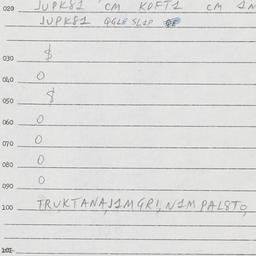 020 JUPK81 CM KOFT1 CM
JUPK81 GGLE SLIP
030 $
040 0
050 $
060 0
070 0
080 0
090 0
100 TRUKTANAJ1MGRI,N1MPALSTO,
101